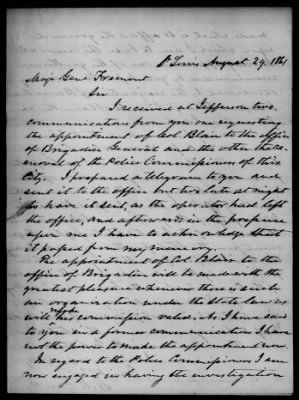 St Louis August 29, 1861
Maj. Genl Fremont
Sir
I received at Jefferson two
communications from you one requesting
the appointment of Col Blair to the office
of Brigadier General and the other the re-
moval of the Police Commissioners of this
City. I prepared a telegram to you and
sent it to the office but too late at night
to have it sent, as the operator had left
the office, and afterwards in the pressure
upon me I have to acknowledge that
it passed from my memory.
The appointment of Col Blair to the
office of Brigadier will be made with the
greatest pleasure whenever there is such
an organization under the State law as
will make his commission valid. As I have said
to you in a former communication I have
not the power to make the appointment now.
In regard to the Police Commissioners I am
now engaged in having the investigation